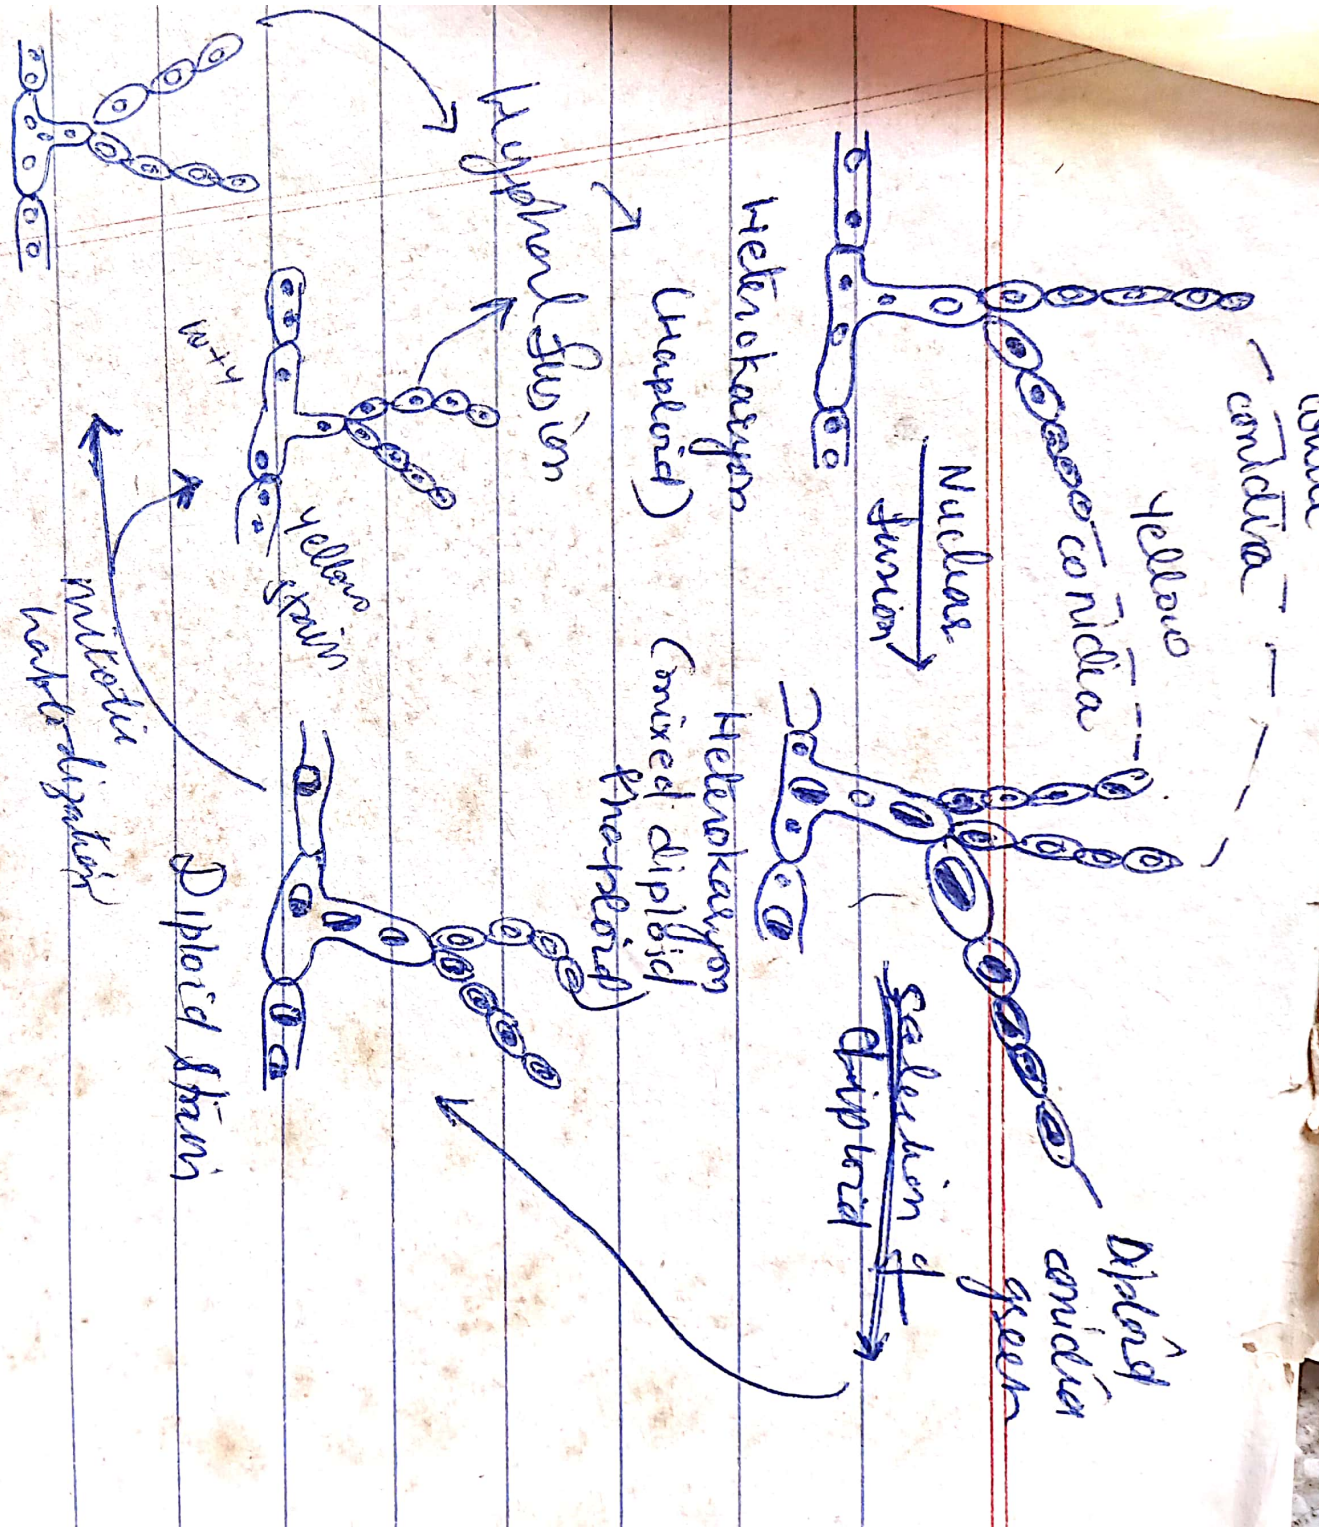 conidia
Yellow
conidia
Diploid
conidia
green
Nuclear
fusion
Selection of
diploid
Heterokaryon
(Haploid)
Heterokaryon
(mixed diploid
haploid)
Hyphal fusion
yellow
stain
Diploid strain
mitotic
haplodization